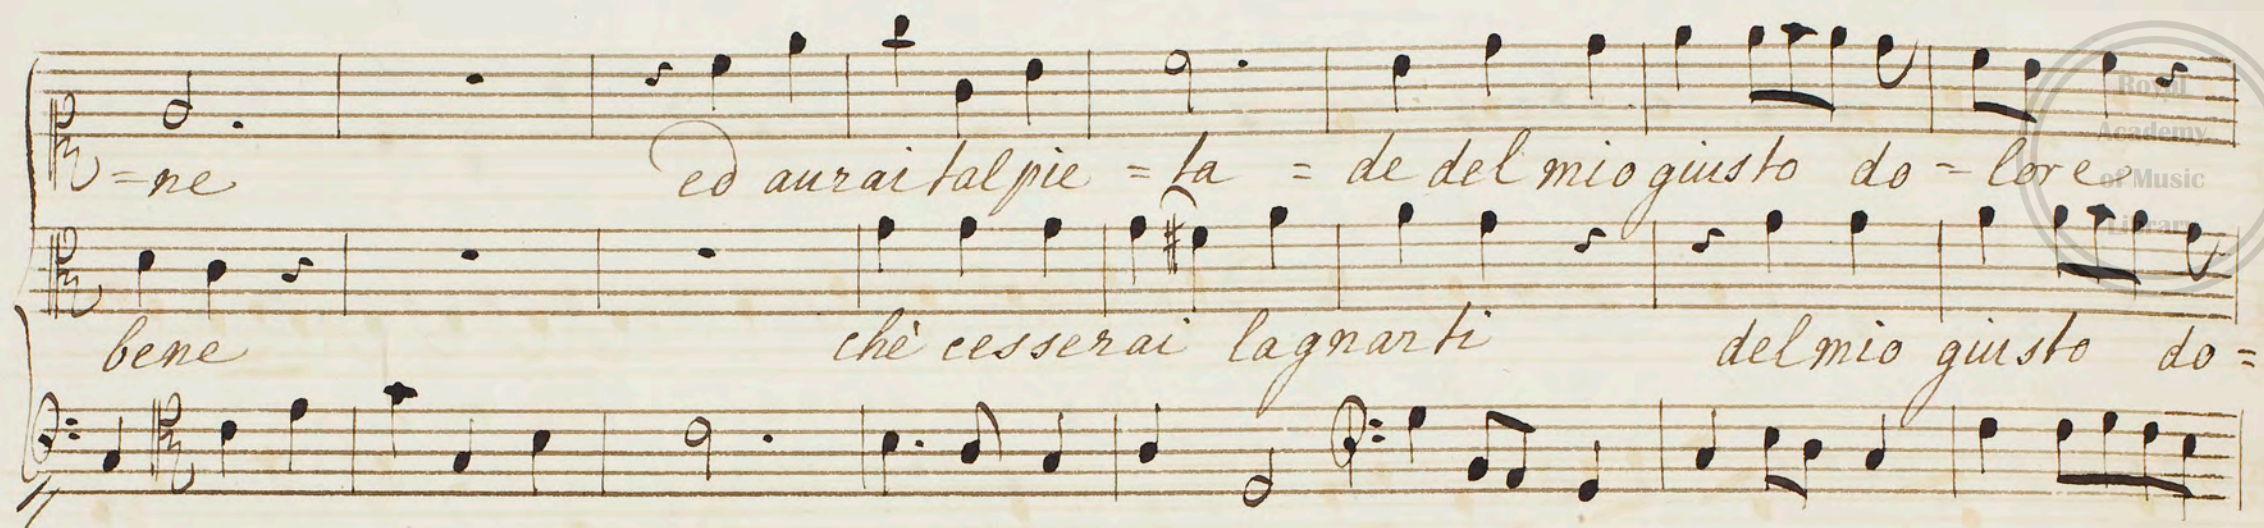 =ne ed aurai tal pie = ta = de del mio giusto do = lore
bene chè cesserai lagnarti del mio giusto do =
Royal
Academy
of Music
Library